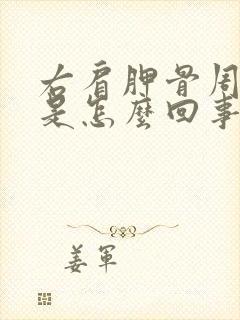 右肩胛骨周
是怎麼回事
姜軍